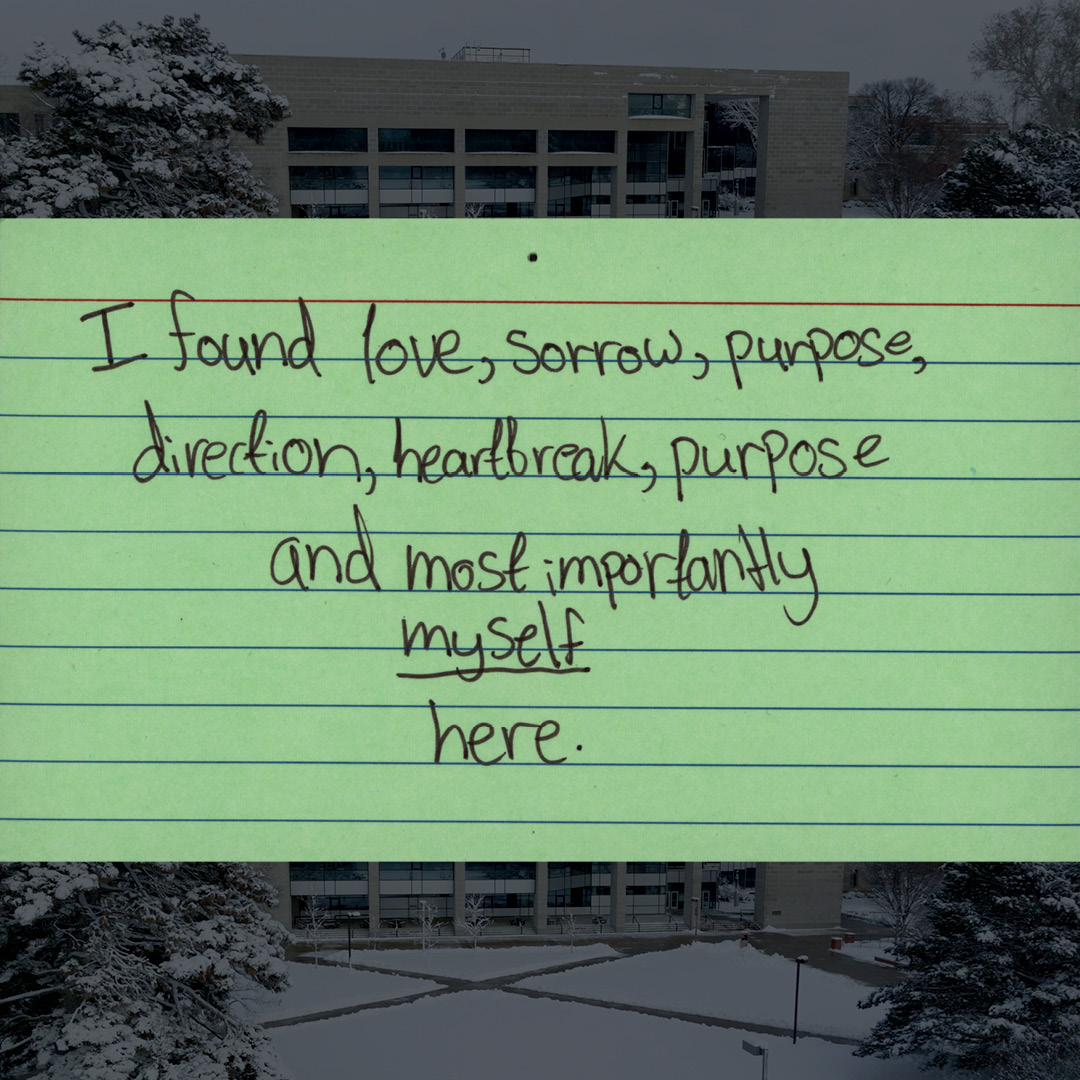 I found love, sorrow, purpose,
direction, heartbreak, purpose
and most importantly
myself
here.